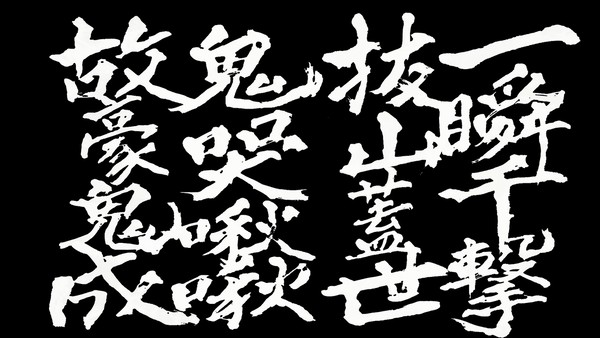 一瞬千撃
抜山蓋世
鬼哭啾啾
故豪鬼成